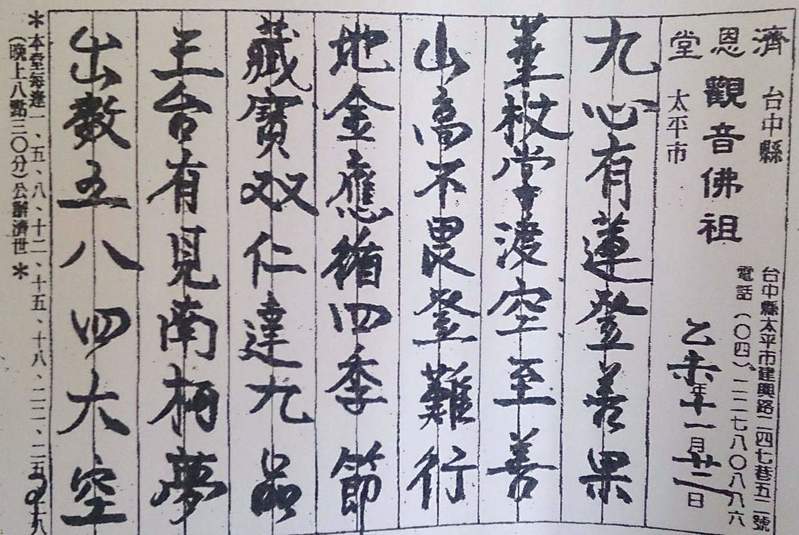 濟恩堂
台中縣
太平市
觀音佛祖
台中縣太平市建興路二四七巷五二號
電話(〇四)二二七八〇八八六
乙亥年十一月廿二日
九心有蓮登善果
華杖掌渡空至善
山高不畏登難行
地金應循四季節
藏寶双仁達九品
三台有見南柯夢
出數五八四大空
*本堂每逢一、五、八、十二、十五、十八、二二、二五、
(晚上八點三〇分)公辦濟世*